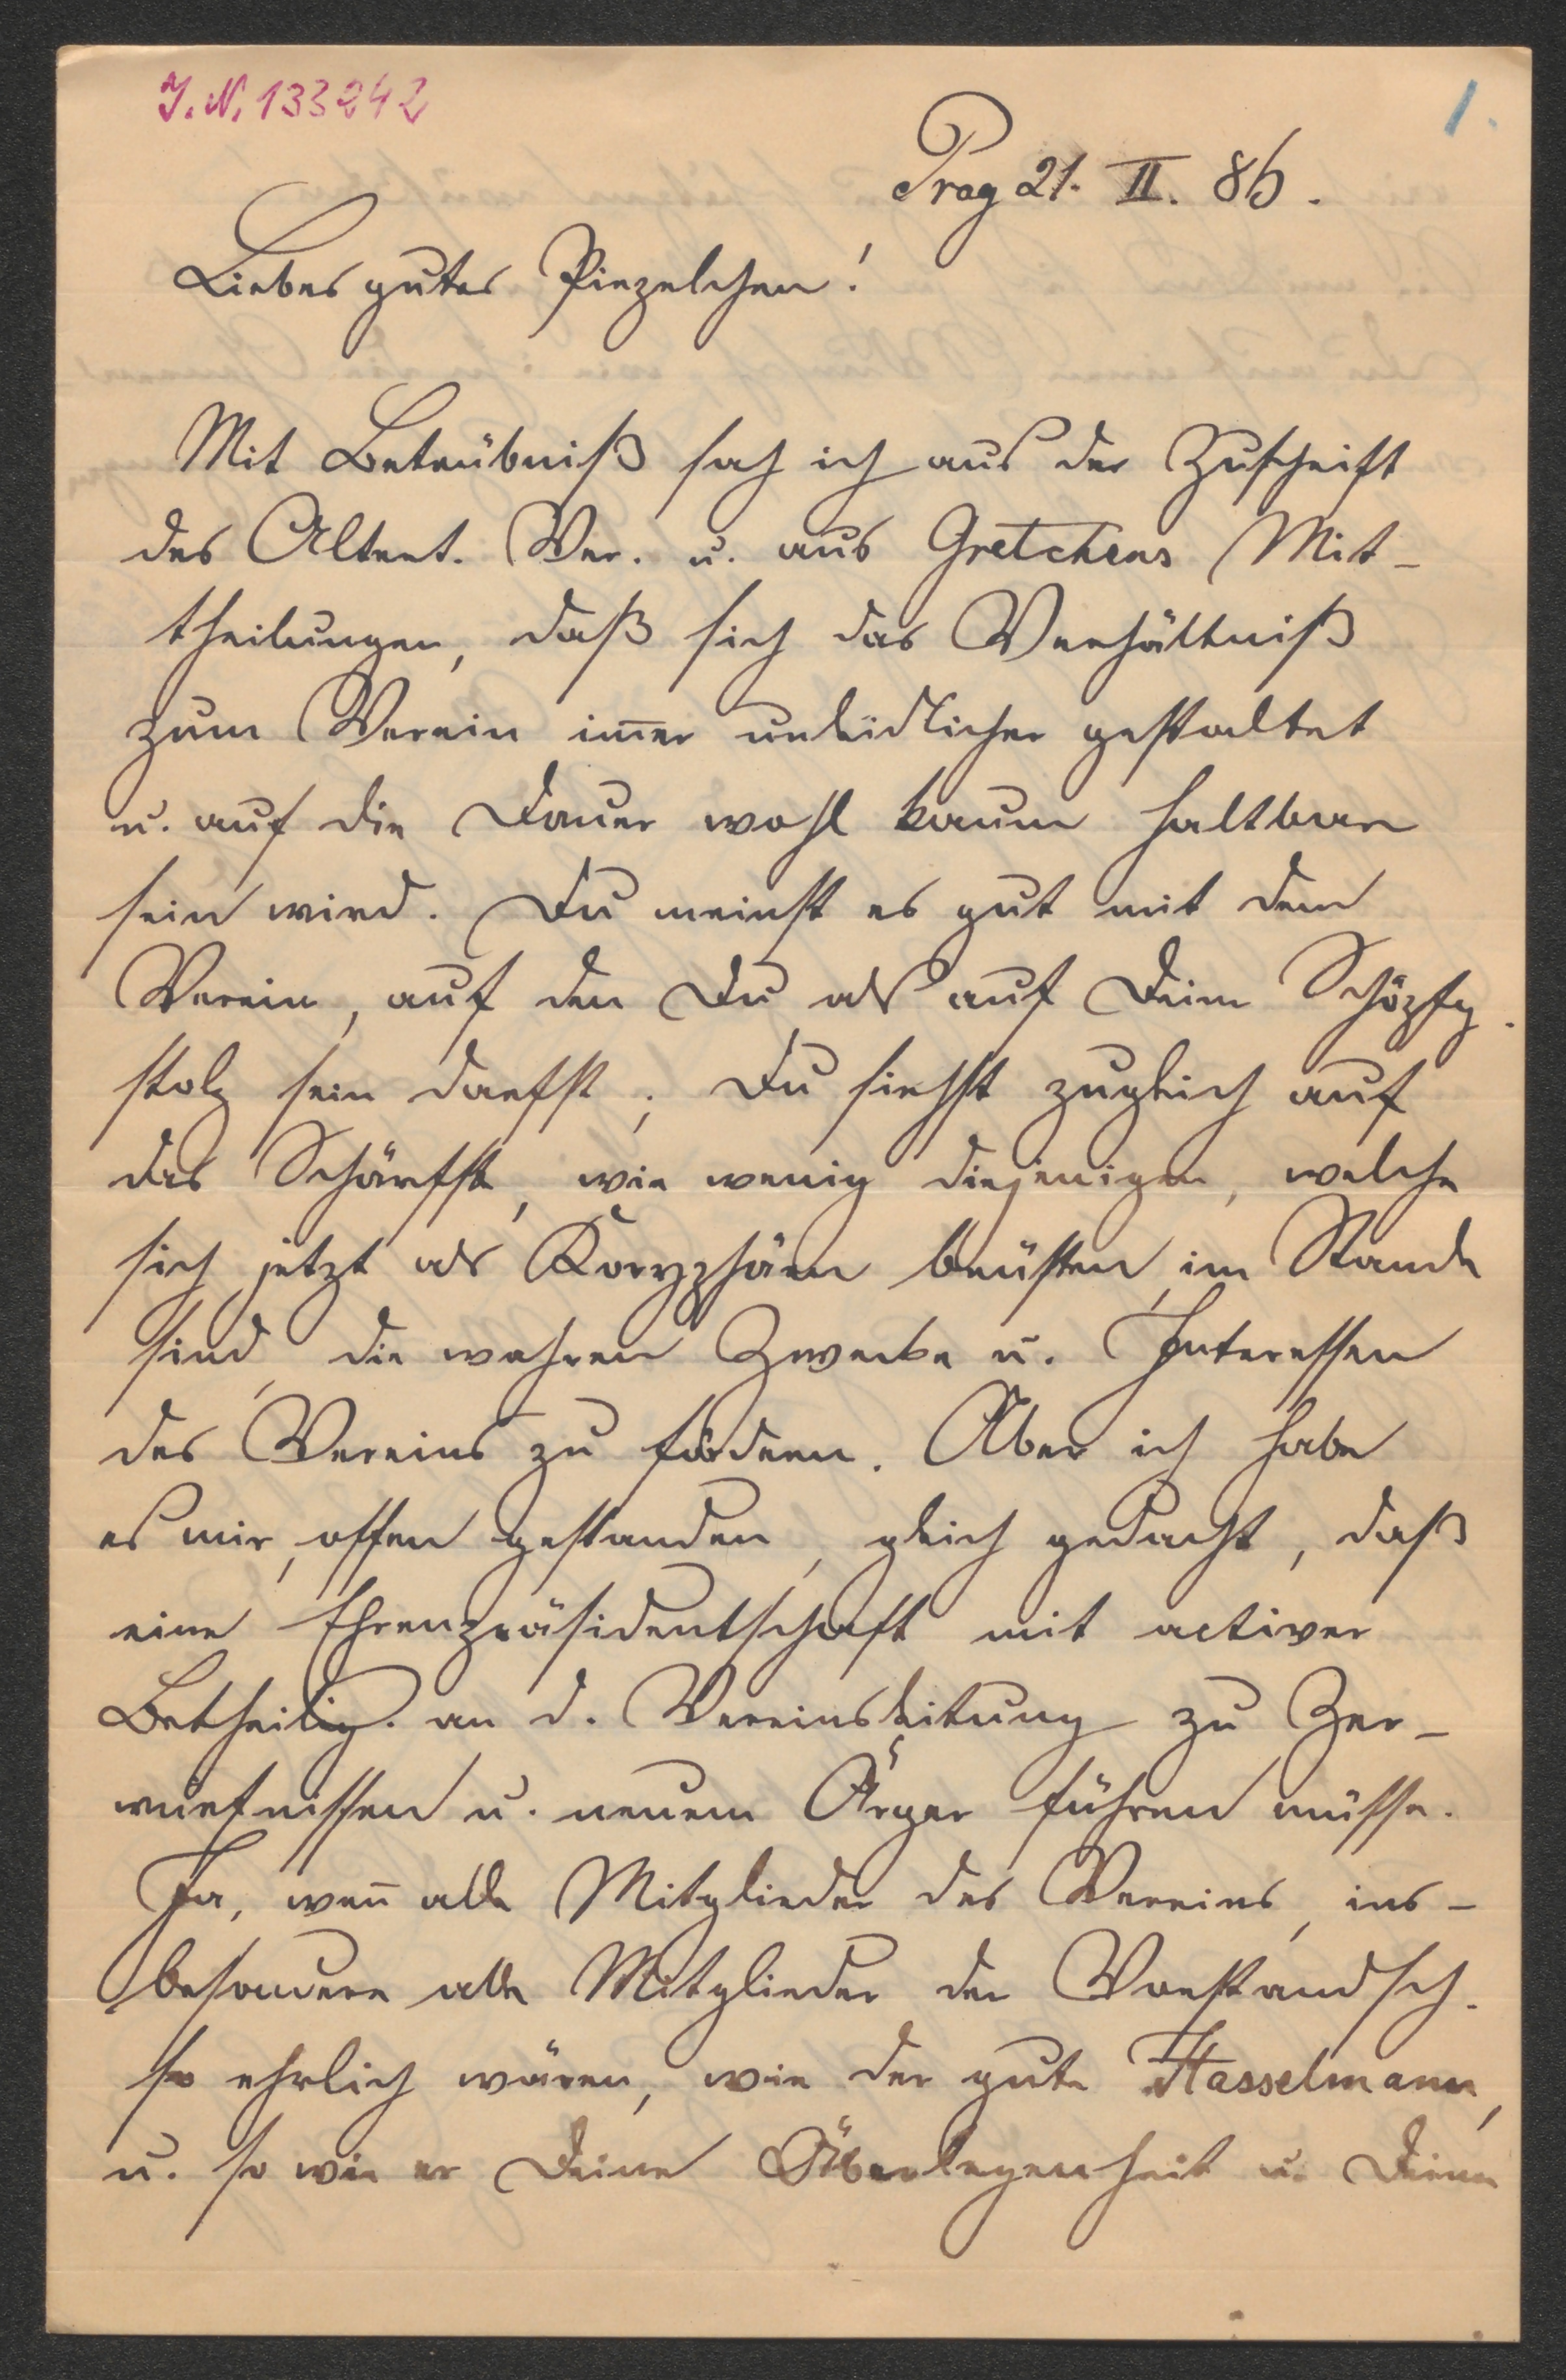 J. N. 133242
1.
Prag 21. II. 86.
Liebes gutes Piezelchen!
Mit Betrübniß sah ich aus der Zuschrift
des Altert. Ver. u. aus Gretchens Mit-
theilungen, daß sich das Verhältniß
zum Verein im̅er unleidlicher gestaltet
u. auf die Dauer wohl kaum haltbar
sein wird. Du meinst es gut mit dem
Verein, auf den Du als auf Deine Schöpfg.
stolz sein darfst; Du siehst zugleich auf
das Schärfste, wie wenig diejenigen, welche
sich jetzt als Koryphäen brüsten, im Stande
sind, die wahren Zwecke u. Interessen
des Vereins zu fördern. Aber ich habe
es mir, offen gestanden, gleich gedacht, daß
eine Ehrenpräsidentschaft mit activer
Betheilig. an d. Vereinsleitung zu Zer-
würfnissen u. neuem Ärger führen müsse.
Ja, wen̅ alle Mitglieder des Vereins, ins-
besondere alle Mitglieder der Vorstandsch.
so ehrlich wären, wie der gute Hasselmann,
u. so wie er Deine Überlegenheit u. Deine